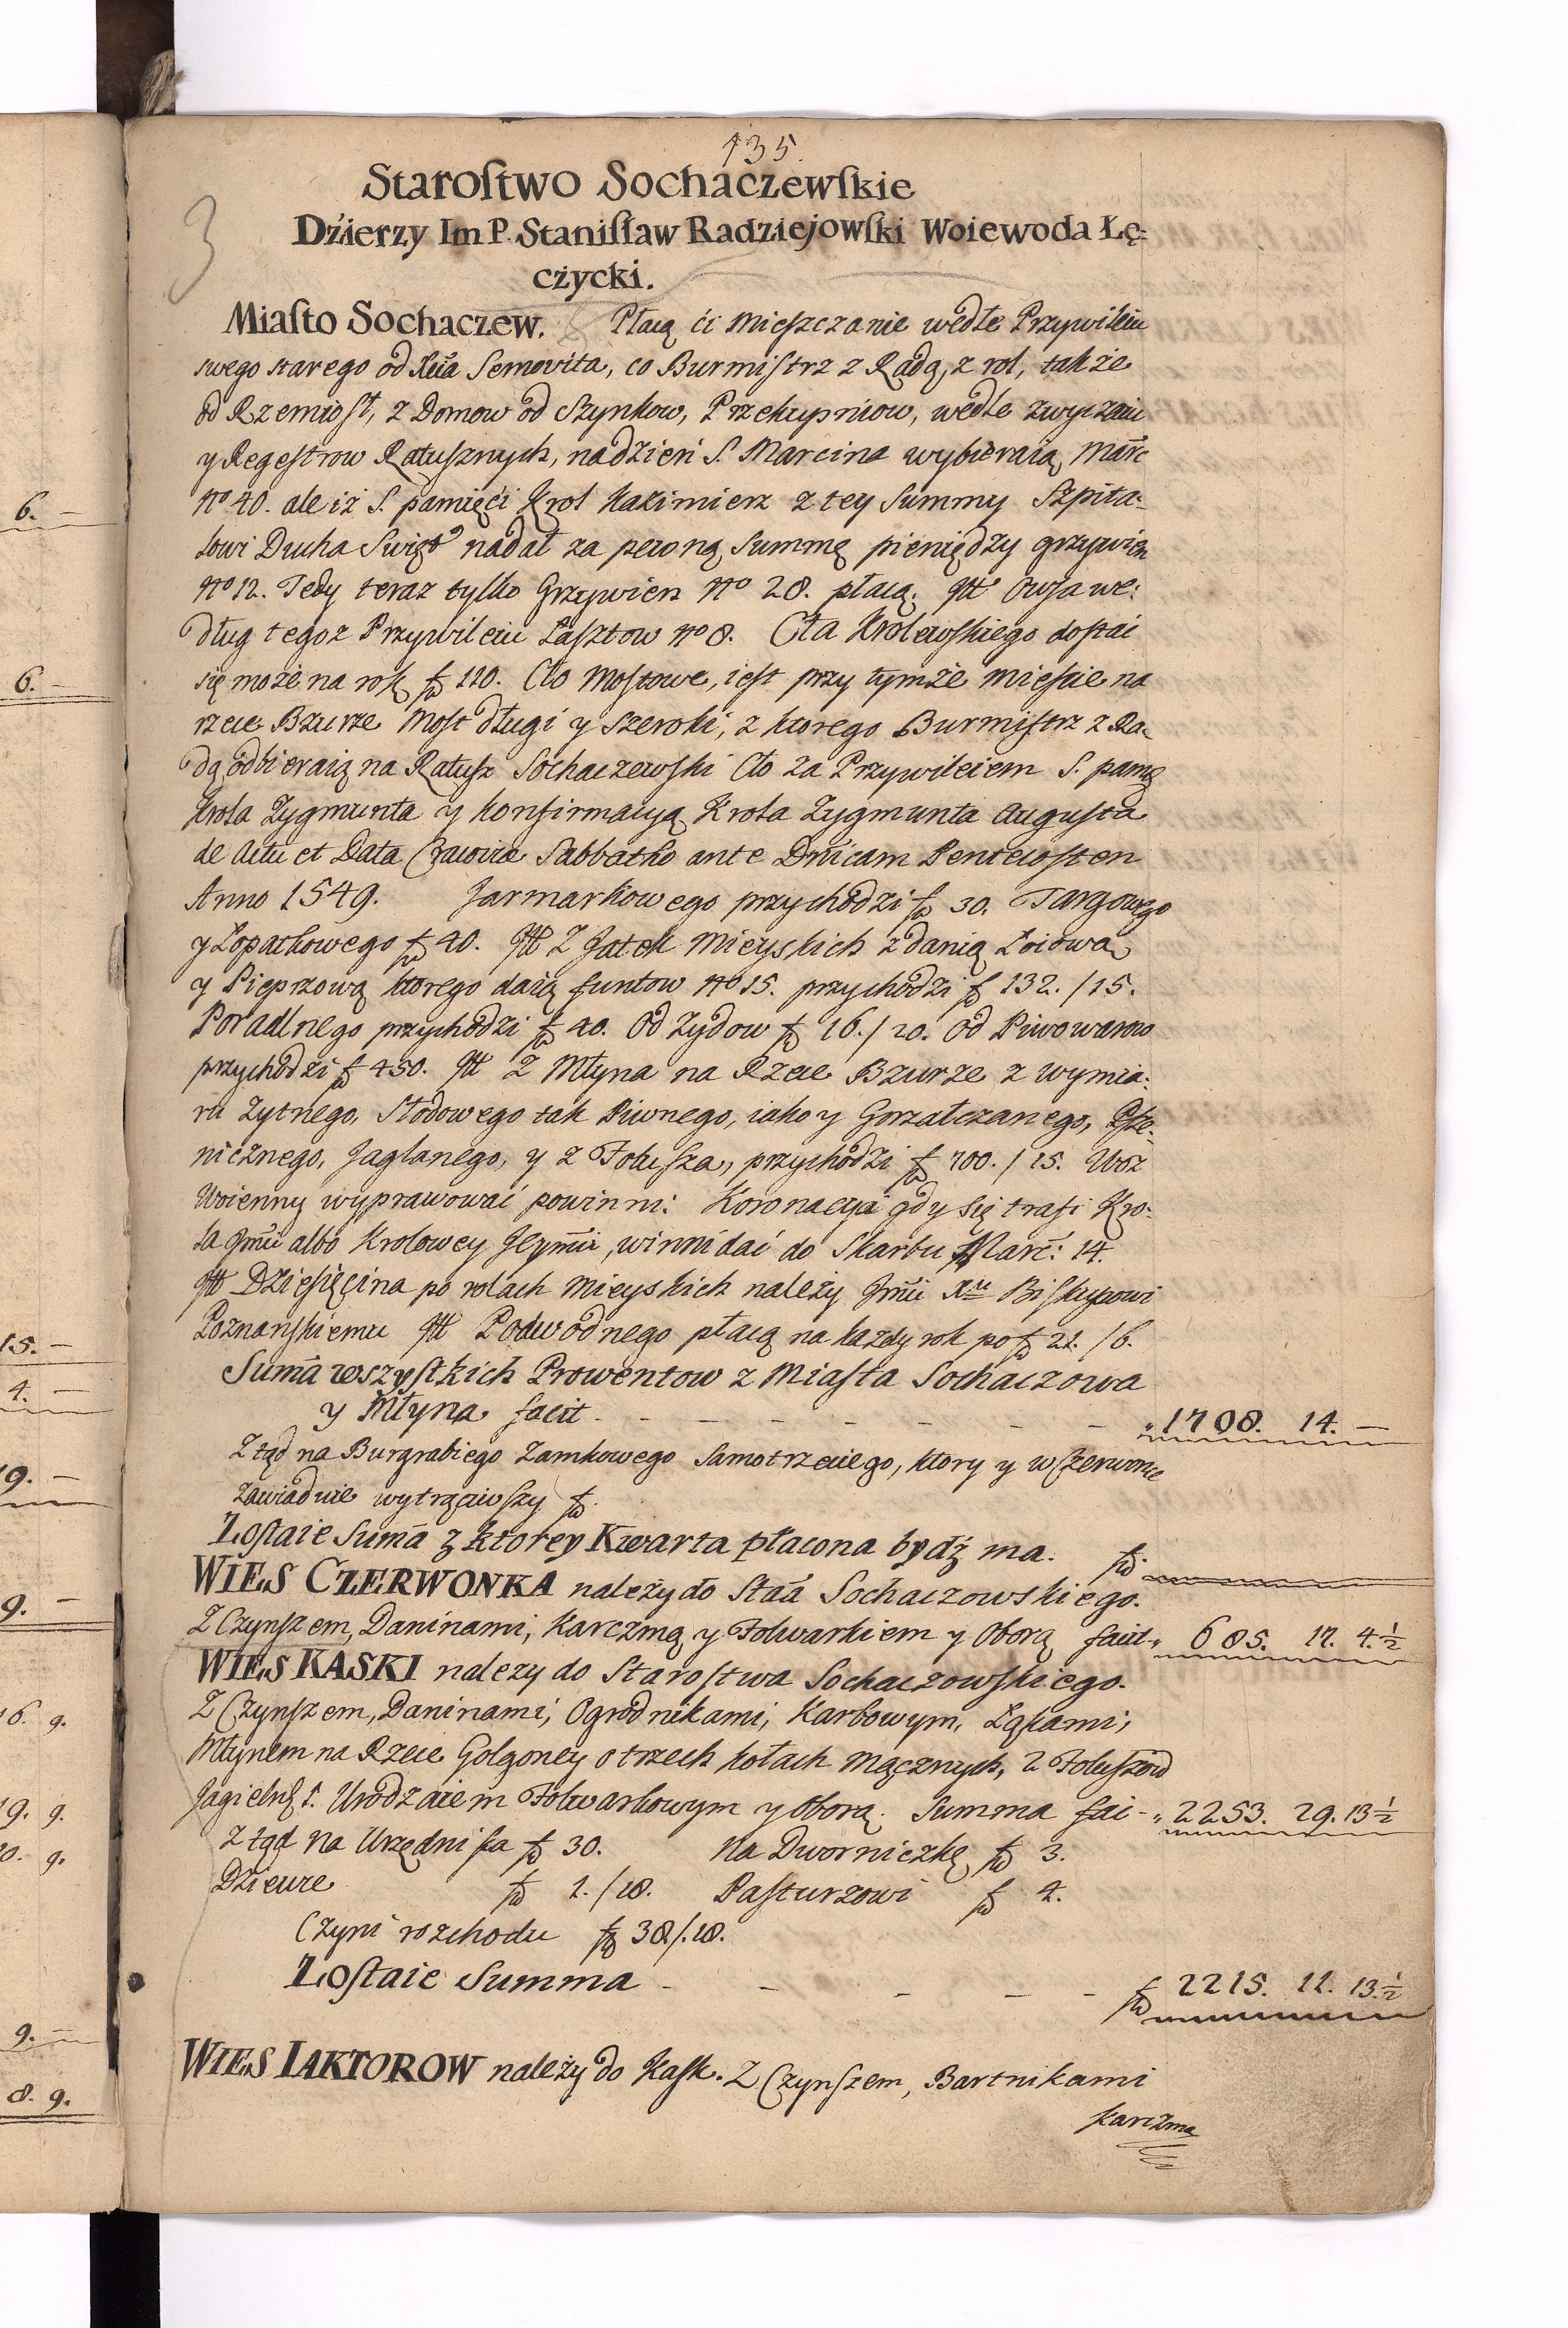 135.
3
Starostwo Sochaczewskie
Dźierzy Im P. Stanisław Radziejowski Woiewoda Łę:
czycki.
Miasto Sochaczew. Płacą ći Mieszczanie wedle Przywileiu
swego starego od Xcia Semovita, co Burmistrz z Radą, z rol, także
od Rzemiosł, z Domow od Szynkow, Przekupniow, wedle zwyczaiu
y Regestrow Ratusznych, nadzień S. Marcina wybieraią, Marc
No 40. ale iż S. pamięći Krol Kazimierz z tey Summy Szpita-
lowi Ducha Swięto nadał za pewną Summę pieniędzy grzywien
No 12. Tedy teraz tylko Grzywien No 28. płacą. Itt Owsa we:
dług tegoż Przywileiu Łasztow No 8. Cła Krolewskiego dostai
się może na rok f 120. Cło Mostowe, iest przy tymże Mieście na
rzece Bzurze Most długi y szeroki, z ktorego Burmistrz z Ra-
dą odbieraią na Ratusz Sochaczewski Cło za Przywileiem S. pamę
Krola Zygmunta y konfirmacyą Krola Zygmunta Augusta
de Actu et Data Cracoviæ Sabbatho ante Dnicam Pentecosten
Anno 1549. Jarmarkowego przychodzi f 30. Targowego
y Łopatkowego f 40. Itt Z Jatek Mieyskich z danią Łoiową
y Pieprzową ktorego daią funtow No 15. przychodzi f 132. /15.
Poradlnego przychodzi f 40. Od Żydow f 16. /20. Od Piwowarow
przychodzi f 450. Itt Z Młyna na Rzece Bzurze z wymia:
ru Żytnego, Słodowego tak Piwnego, iako y Gorzałczanego, Psze-
nicznego, Jaglanego, y z Folusza, przychodzi f 700. /15. Woz
Woienny wyprawować powinni: Koronacya gdy się trafi Kro:
la Jmci albo Krolowey Jeymci, winni dać do Skarbu Marc: 14.
Itt Dziesięcina po rolach Mieyskich należy Jmci Xu Biskupowi
Poznanskiemu Itt Podwodnego płacą na każdy rok po f 21. /6.
Suma wszystkich Prowentow z Miasta Sochaczowa
y Młyna facit - - - - - - - - „ 1708. 14. —
Ztąd na Burgrabiego Zamkowego Samotrzeciego, ktory y w Czerwonce
zawiaduie wytrąciwszy f.
Zostaie Suma z ktorey Kwarta płacona bydź ma. f.
WIES CZERWONKA należy do Staa Sochaczowskiego.
Z Czynszem, Daninami, Karczmą y Folwarkiem y Oborą facit „ 685. 17. 4.½
WIES KASKI nalezy do Starostwa Sochaczowskiego.
Z Czynszem, Daninami, Ogrodnikami, Karbowym, Łąkami,
Młynem na Rzece Golgoney o trzech kołach Mącznych, 2 Foluszow
Jagielny 1. Urodzaiem Folwarkowym y Oborą. Summa faci- „ 2253. 29. 13½
Ztąd na Urzędnika f 30. Na Dworniczkę f 3.
Dziewce f 1. /18. Pasturzowi f 4.
Czyni rozchodu f 38/.18.
Zostaie Summa - - - - - f 2215. 11. 13.½
WIES IAKTOROW należy do Kask. Z Czynszem, Bartnikami
karczmą
6. —
6. —
15. —
4. —
19. —
9. —
16. 9.
19. 9.
9.
9. —
8. 9.